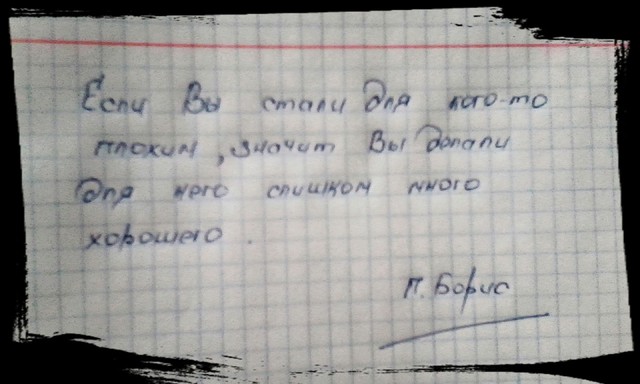 Если Вы стали для кого-то
плохим, значит Вы делали
для него слишком много
хорошего.
П. Борис